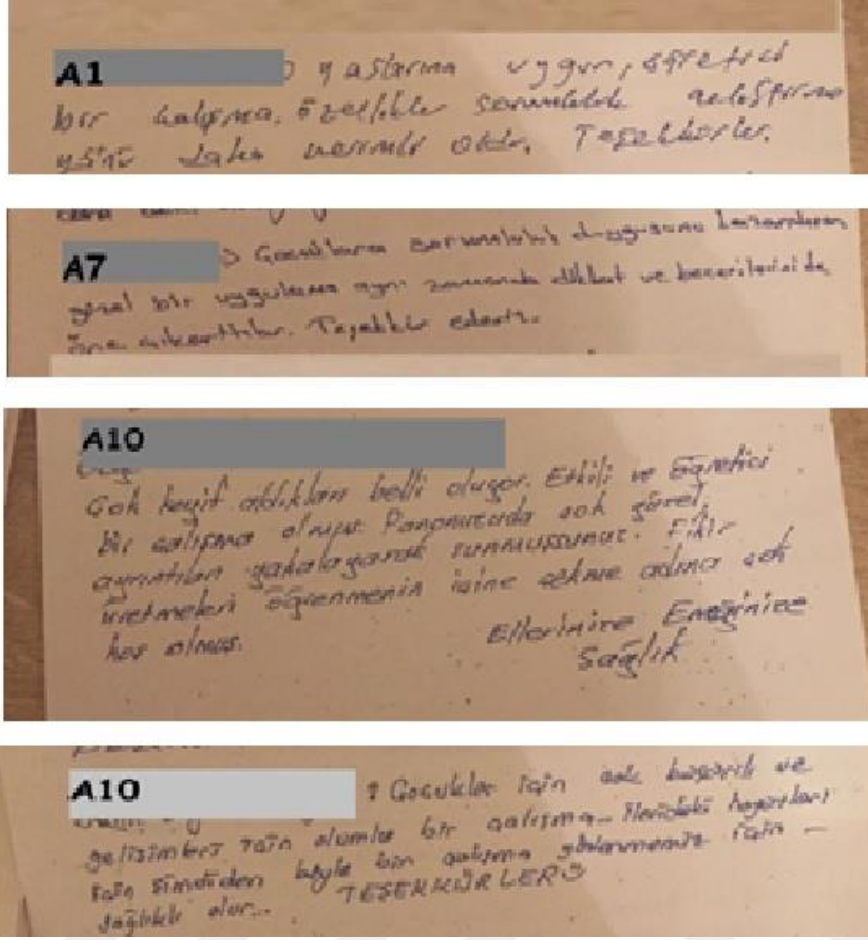 A1
yaşlarına uygun, öğretici
bir çalışma. Özellikle sorumluluk geliştirme
yönü daha verimli olur. Teşekkürler.
A7
Çocuklara sorumluluk duygusunu kazandıran
güzel bir uygulama aynı zamanda dikkat ve becerilerini de
öne çıkarttılar. Teşekkür ederiz.
A10
Çok keyif aldıkları belli oluyor. Etkili ve öğretici
bir çalışma olmuş. Panonuzda çok güzel,
ayrıntıları yakalayarak sunmuşsunuz. Fikir
üretmeleri öğrenmenin içine çekme adına çok
hoş olmuş.
Ellerinize Emeğinize
Sağlık
A10
Çocuklar için çok başarılı ve
gelişimleri için olumlu bir çalışma. İlerideki hayatları
için şimdiden böyle bir çalışma için
TEŞEKKÜRLER
sağlıklı olur...